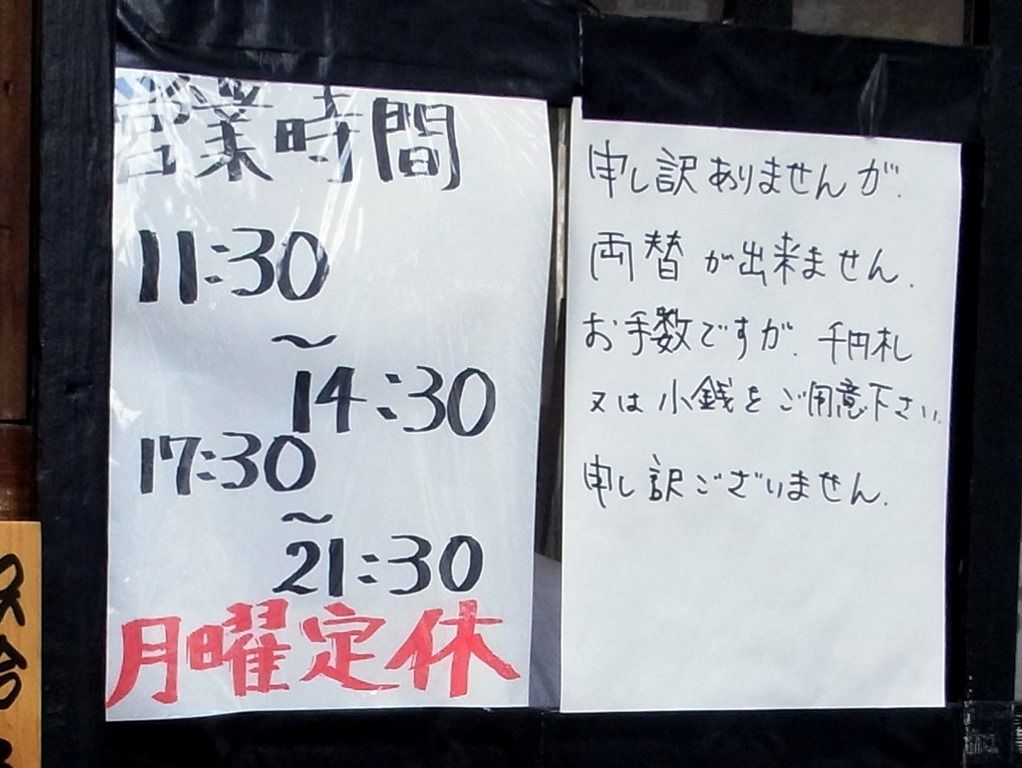 営業時間
11:30
～
14:30
17:30
～
21:30
月曜定休
申し訳ありませんが.
両替が出来ません.
お手数ですが.千円札
又は小銭をご用意下さい.
申し訳ございません.